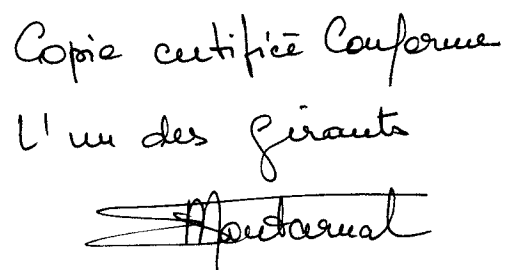 Copie certifiée Conforme
L'un des Gérants
Montarnal